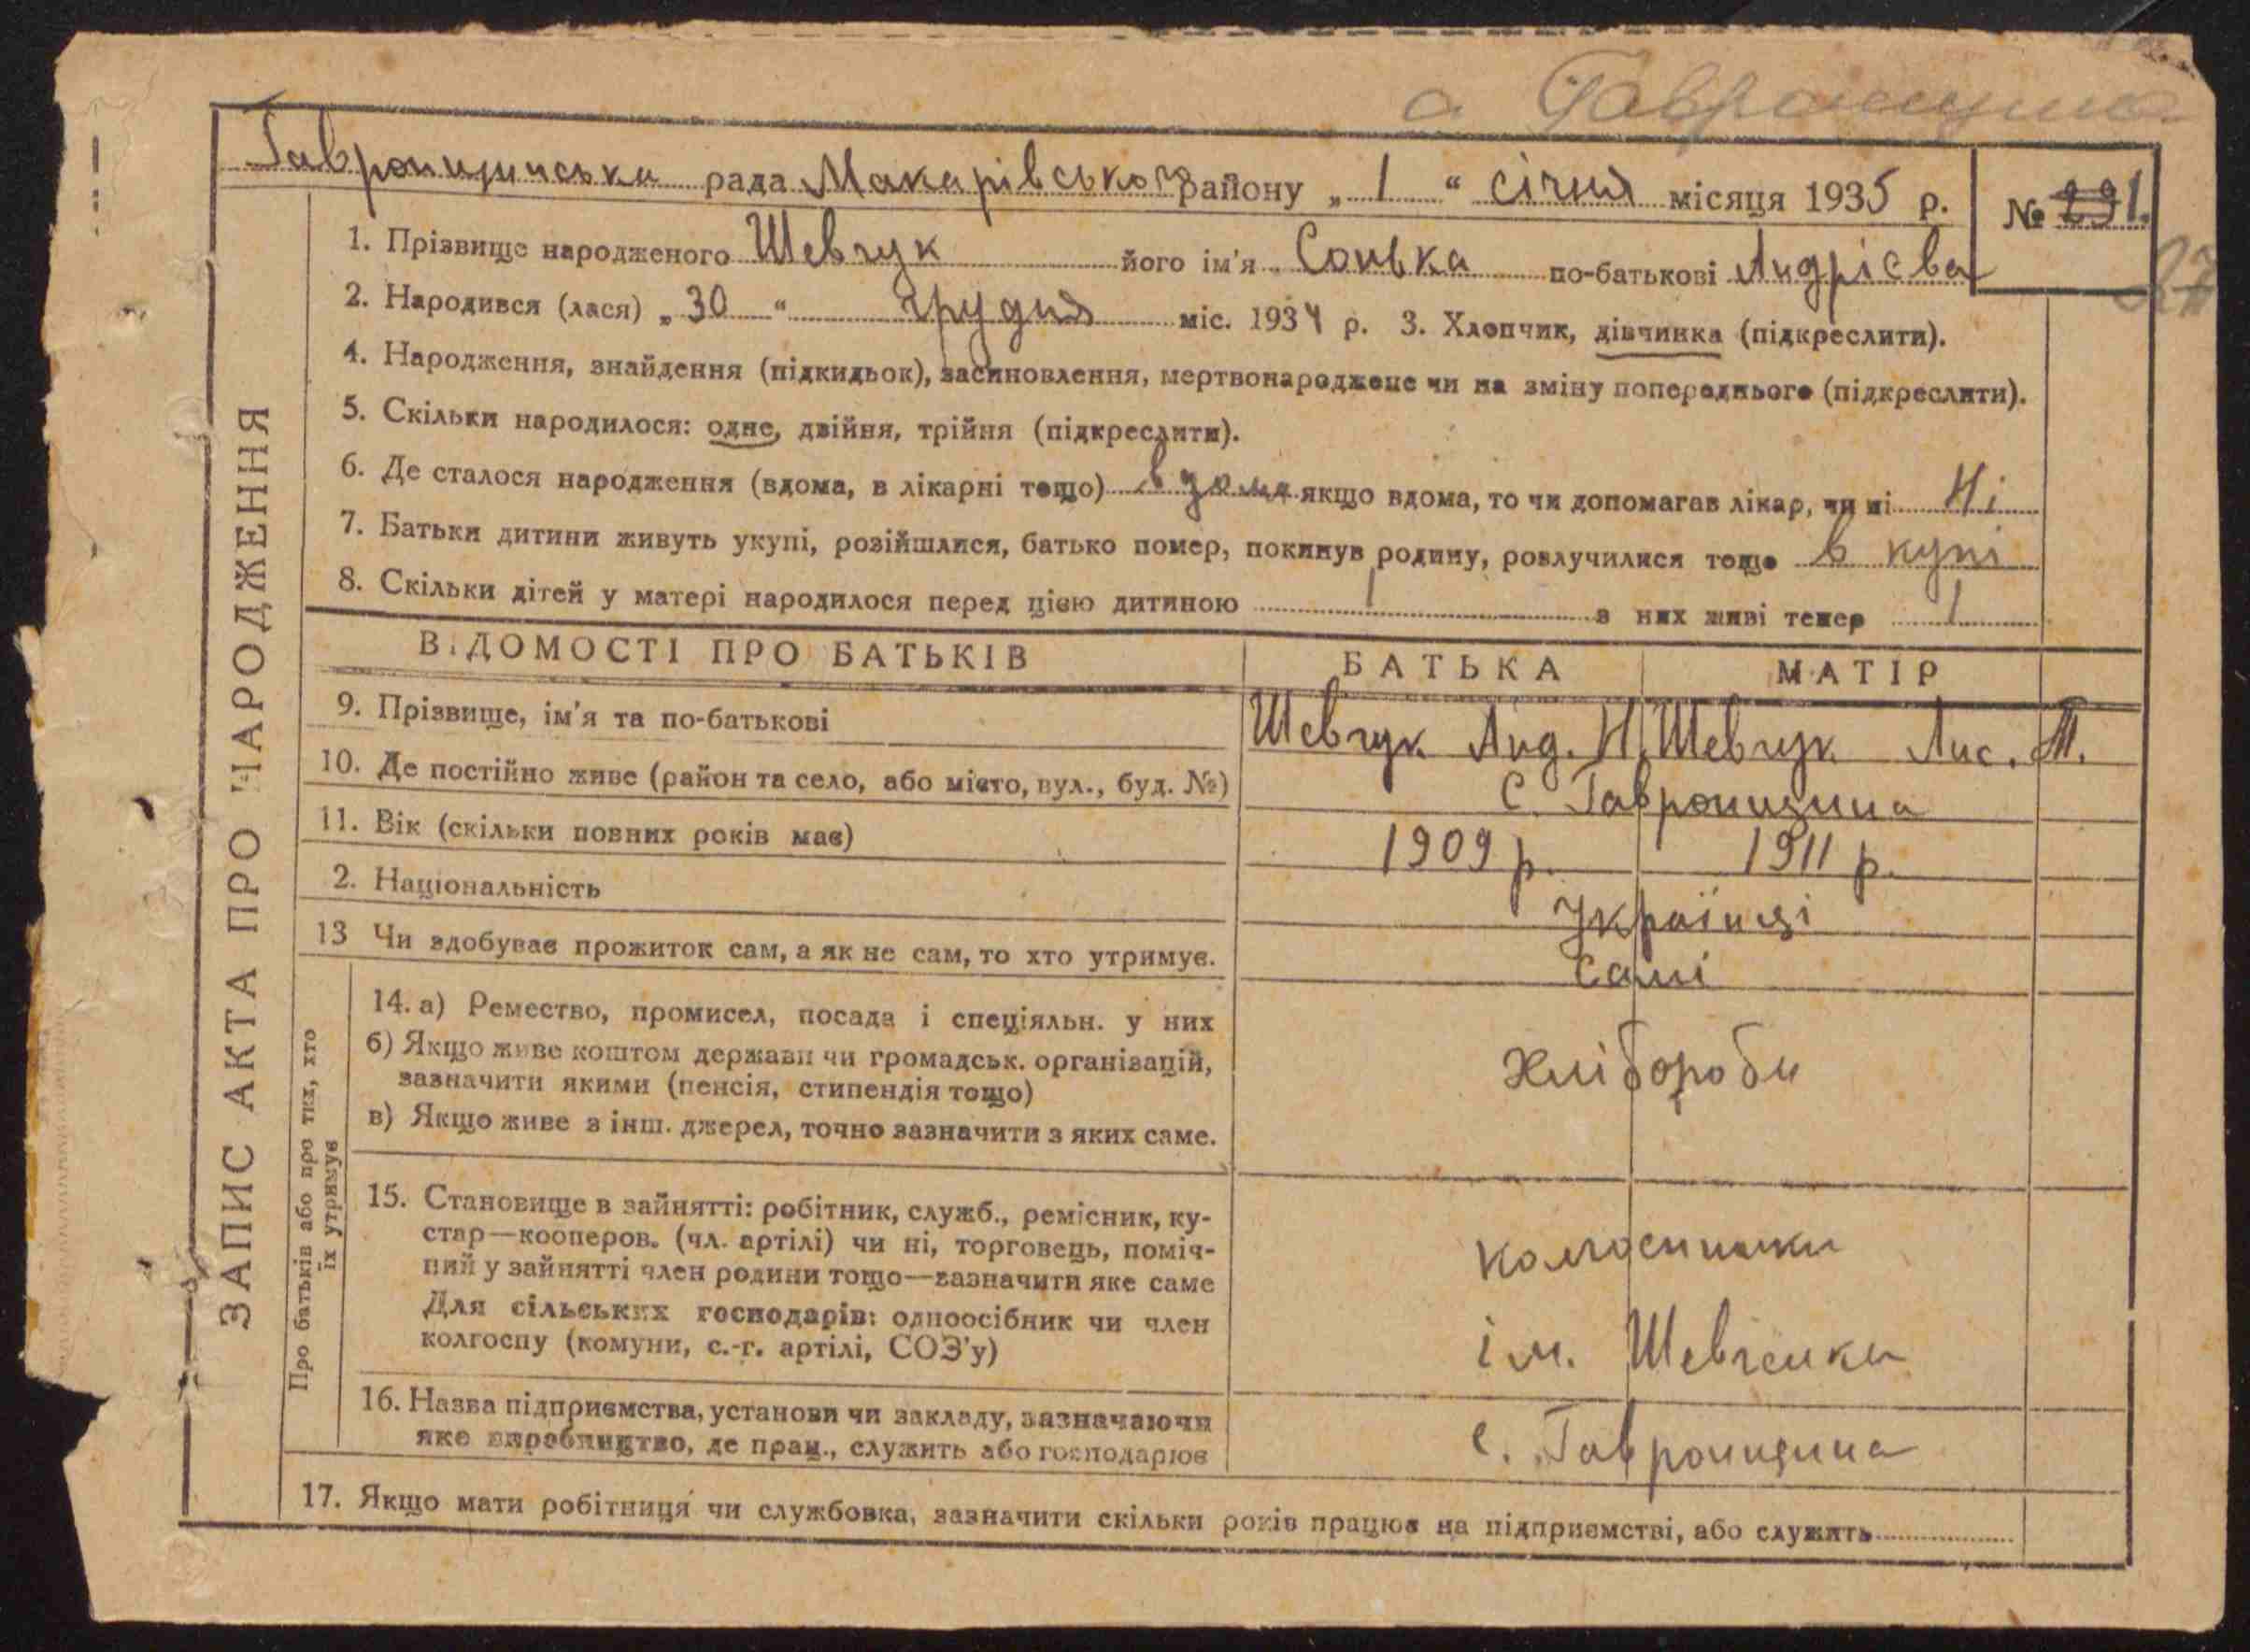 с. Гавронщина
Гавронщинська рада Макарівського району „ 1 “ січня місяця 1935 р. № 1.
1. Прізвище народженого Шевчук його ім'я Сонька по-батькові Андрієва
2. Народився (лася) „ 30 “ грудня міс. 1934 р. 3. Хлопчик, дівчинка (підкреслити).
4. Народження, знайдення (підкидьок), засиновлення, мертвонароджене чи на зміну попереднього (підкреслити).
5. Скільки народилося: одне, двійня, трійня (підкреслити).
6. Де сталося народження (вдома, в лікарні тощо) вдома якщо вдома, то чи допомагав лікар, чи ні Ні
7. Батьки дитини живуть укупі, розійшлися, батько помер, покинув родину, розлучилися тощо в купі
8. Скільки дітей у матері народилося перед цією дитиною 1 з них живі тепер 1
ВІДОМОСТІ ПРО БАТЬКІВ БАТЬКА МАТІР
9. Прізвище, ім'я та по-батькові Шевчук Анд. Н. Шевчук Лис. М.
10. Де постійно живе (район та село, або місто, вул., буд. №) С. Гавронщина
11. Вік (скільки повних років має) 1909 р. 1911 р.
2. Національність Українці
13 Чи здобуває прожиток сам, а як не сам, то хто утримує. Самі
14. а) Ремество, промисел, посада і спеціяльн. у них
б) Якщо живе коштом держави чи громадськ. організацій,
зазначити якими (пенсія, стипендія тощо) хлібороби
в) Якщо живе з інш. джерел, точно зазначити з яких саме.
15. Становище в зайнятті: робітник, служб., ремісник, ку-
стар—кооперов. (чл. артілі) чи ні, торговець, поміч-
ний у зайнятті член родини тощо—зазначити яке саме колгоспники
Для сільських господарів: одноосібник чи член
колгоспу (комуни, с.-г. артілі, СОЗ'у) ім. Шевченка
16. Назва підприємства, установи чи закладу, зазначаючи
яке виробництво, де прац., служить або господарює с. Гавронщина
17. Якщо мати робітниця чи службовка, зазначити скільки років працює на підприємстві, або служить
ЗАПИС АКТА ПРО НАРОДЖЕННЯ
Про батьків або про тих, хто
їх утримує